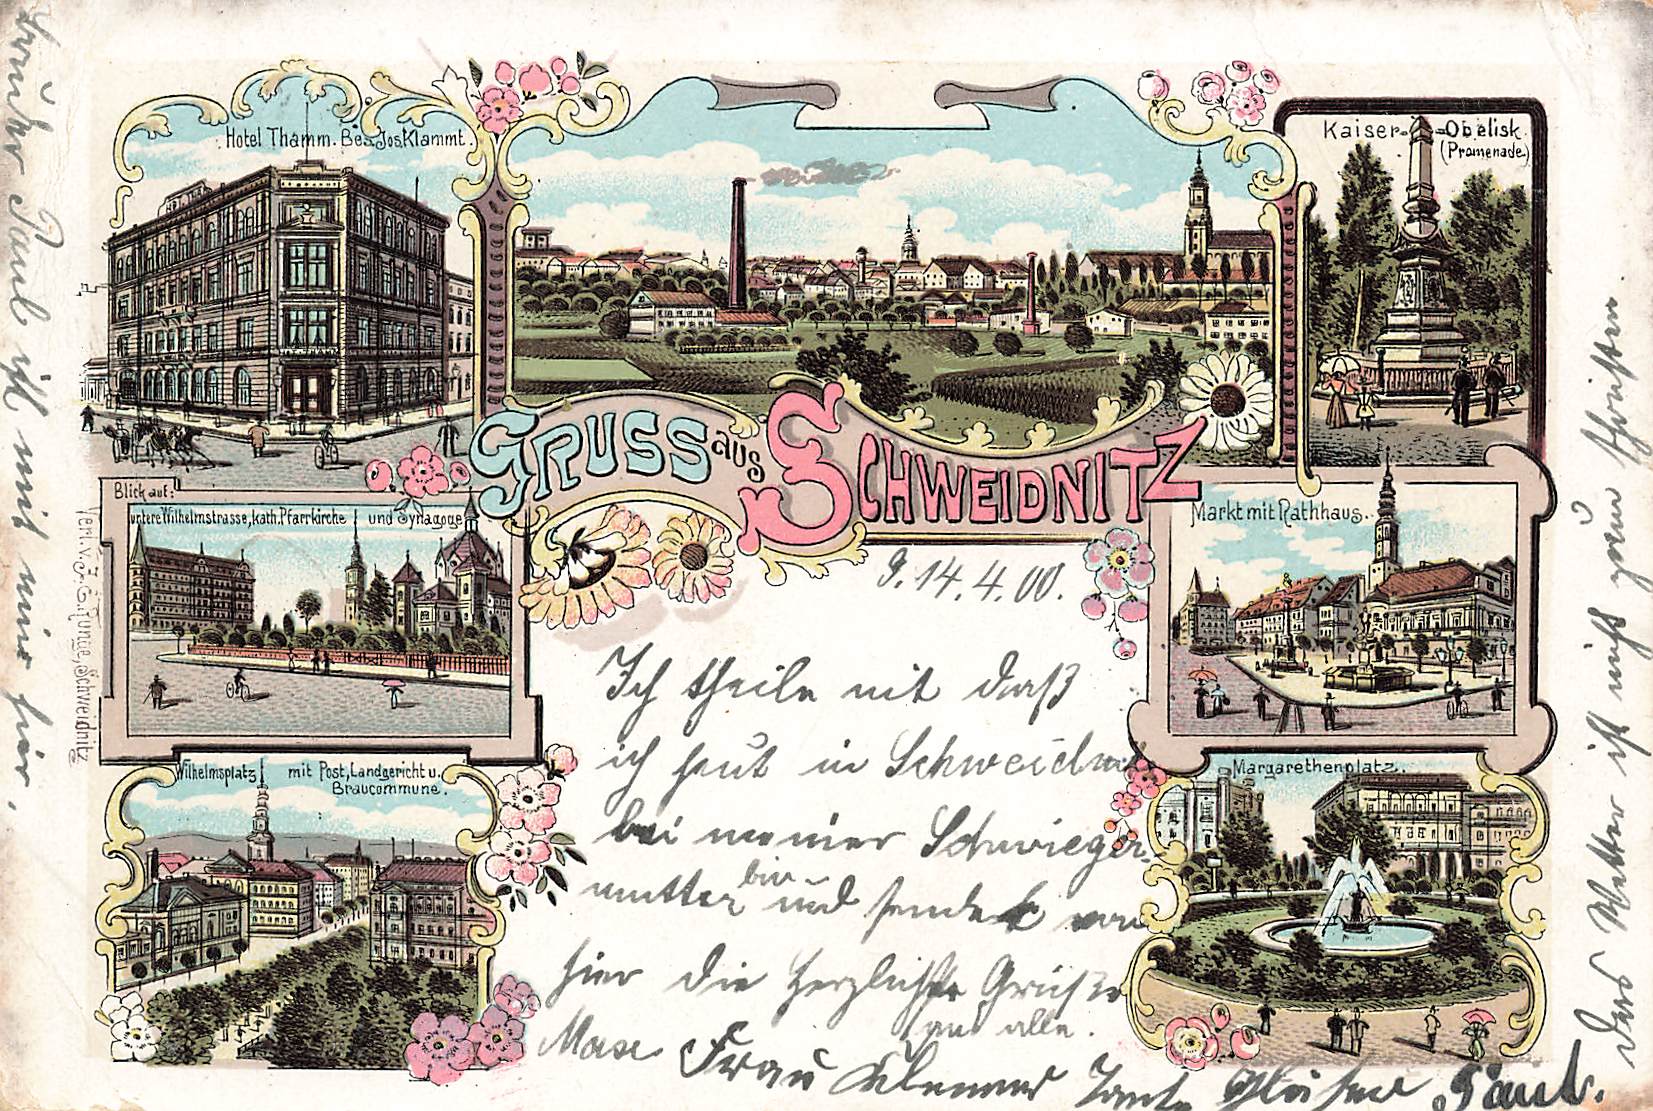 Hotel Thamm. Bes. Jos. Klammt.
Kaiser-Obelisk
(Promenade)
GRUSS aus SCHWEIDNITZ
Blick auf:
untere Wilhelmstrasse, kath. Pfarrkirche und Synagoge
Markt mit Rathhaus.
Wilhelmsplatz mit Post, Landgericht u.
Braucommune.
Margarethenplatz.
Verl. v. F. G. Junge, Schweidnitz
14.4.00.
Ich theile mit daß
ich heut in Schweidnitz
bei meiner Schwieger-
mutter bin und sende von
hier die herzlichsten Grüße
an alle.
Max Frau Tante Paul.
Bruder Paul ist mit mir hier.
Das Wetter ist nicht zum